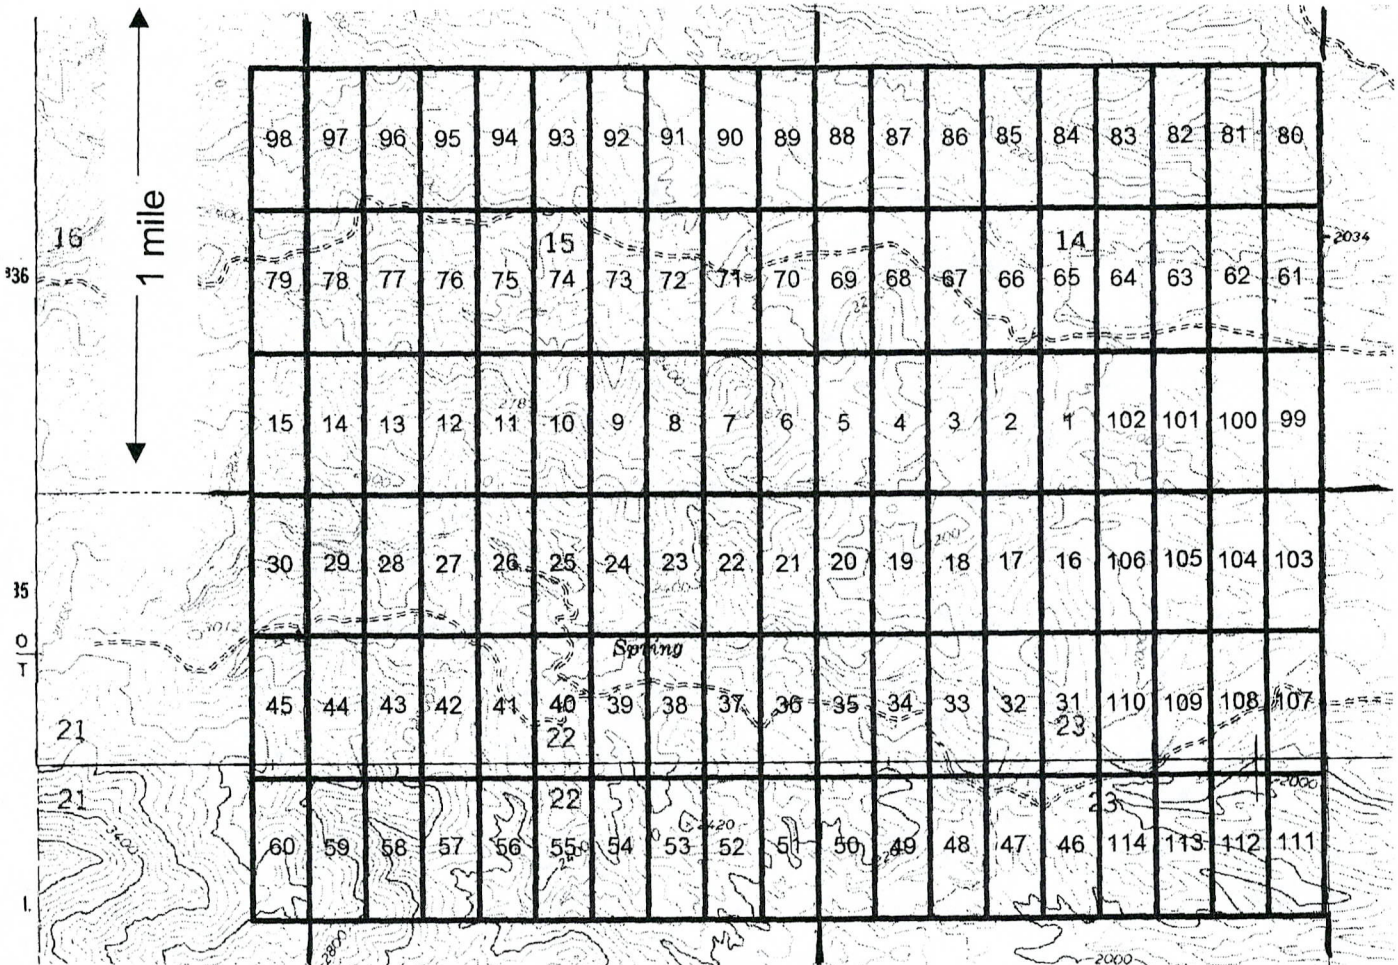 1 mile
98 97 96 95 94 93 92 91 90 89 88 87 86 85 84 83 82 81 80
16 15 14 2034
336
79 78 77 76 75 74 73 72 71 70 69 68 67 66 65 64 63 62 61
15 14 13 12 11 10 9 8 7 6 5 4 3 2 1 102 101 100 99
30 29 28 27 26 25 24 23 22 21 20 19 18 17 16 106 105 104 103
35
O
T
Spring
45 44 43 42 41 40 39 38 37 36 35 34 33 32 31 110 109 108 107
21 22 23
2000
21 22 23
2420
60 59 58 57 56 55 54 53 52 51 50 49 48 47 46 114 113 112 111
3400
2800
2000